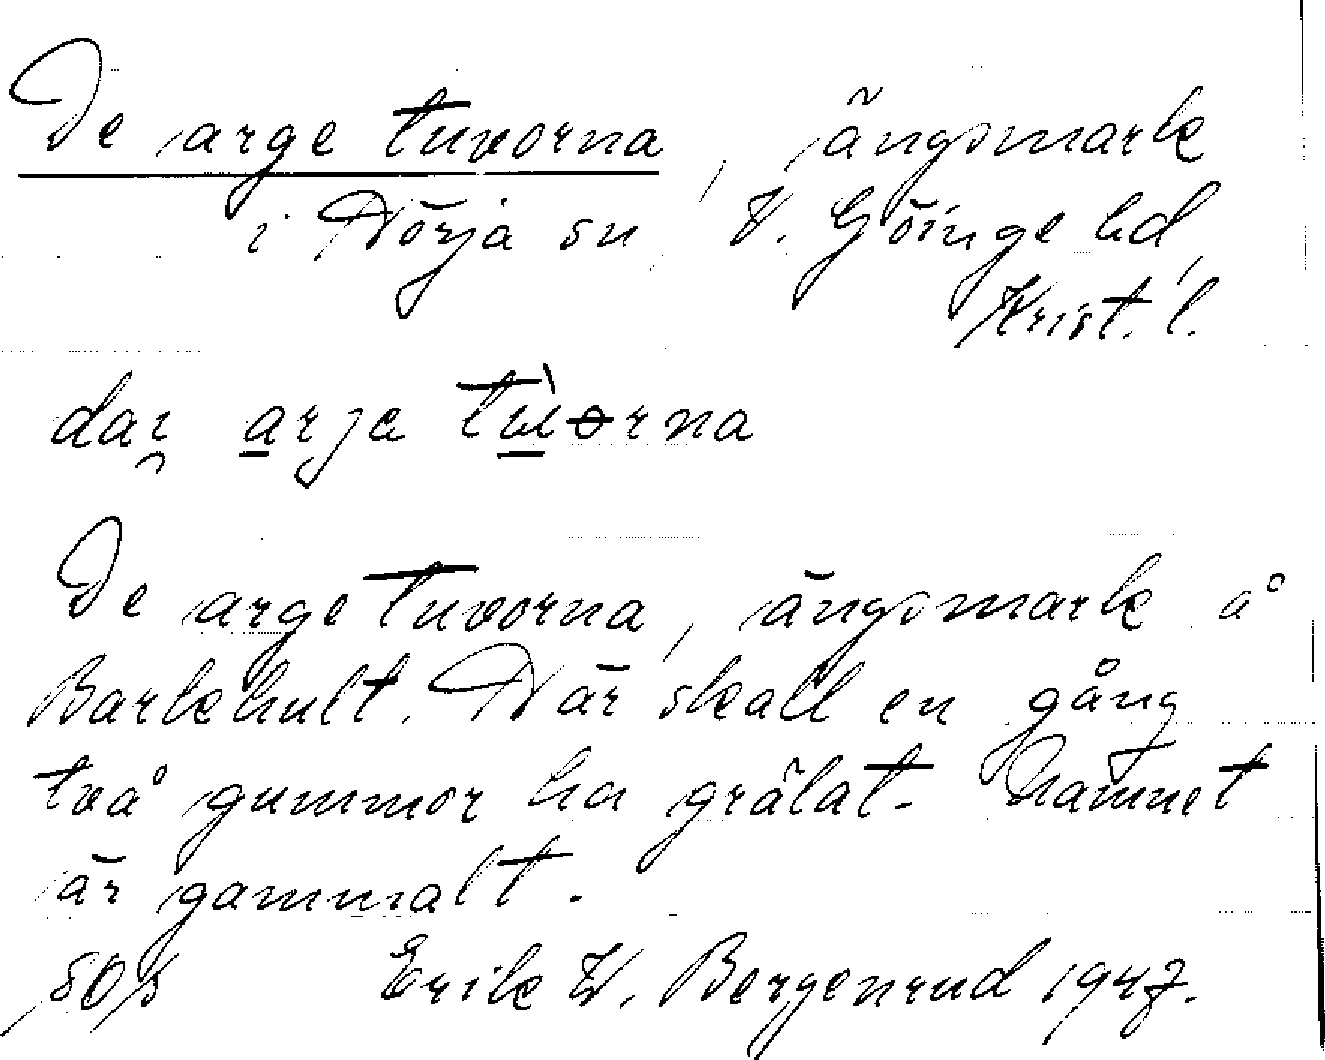 De arge tuvorna, ängsmark
i Nörja sn, V. Göinge hd,
Krist. l.
dai arja tùorna
De arge tuvorna, ängsmark å
Barkhult. Där skall en gång
två gummor ha grälat. Namnet
är gammalt.
Erik W. Bergenrud 1947.